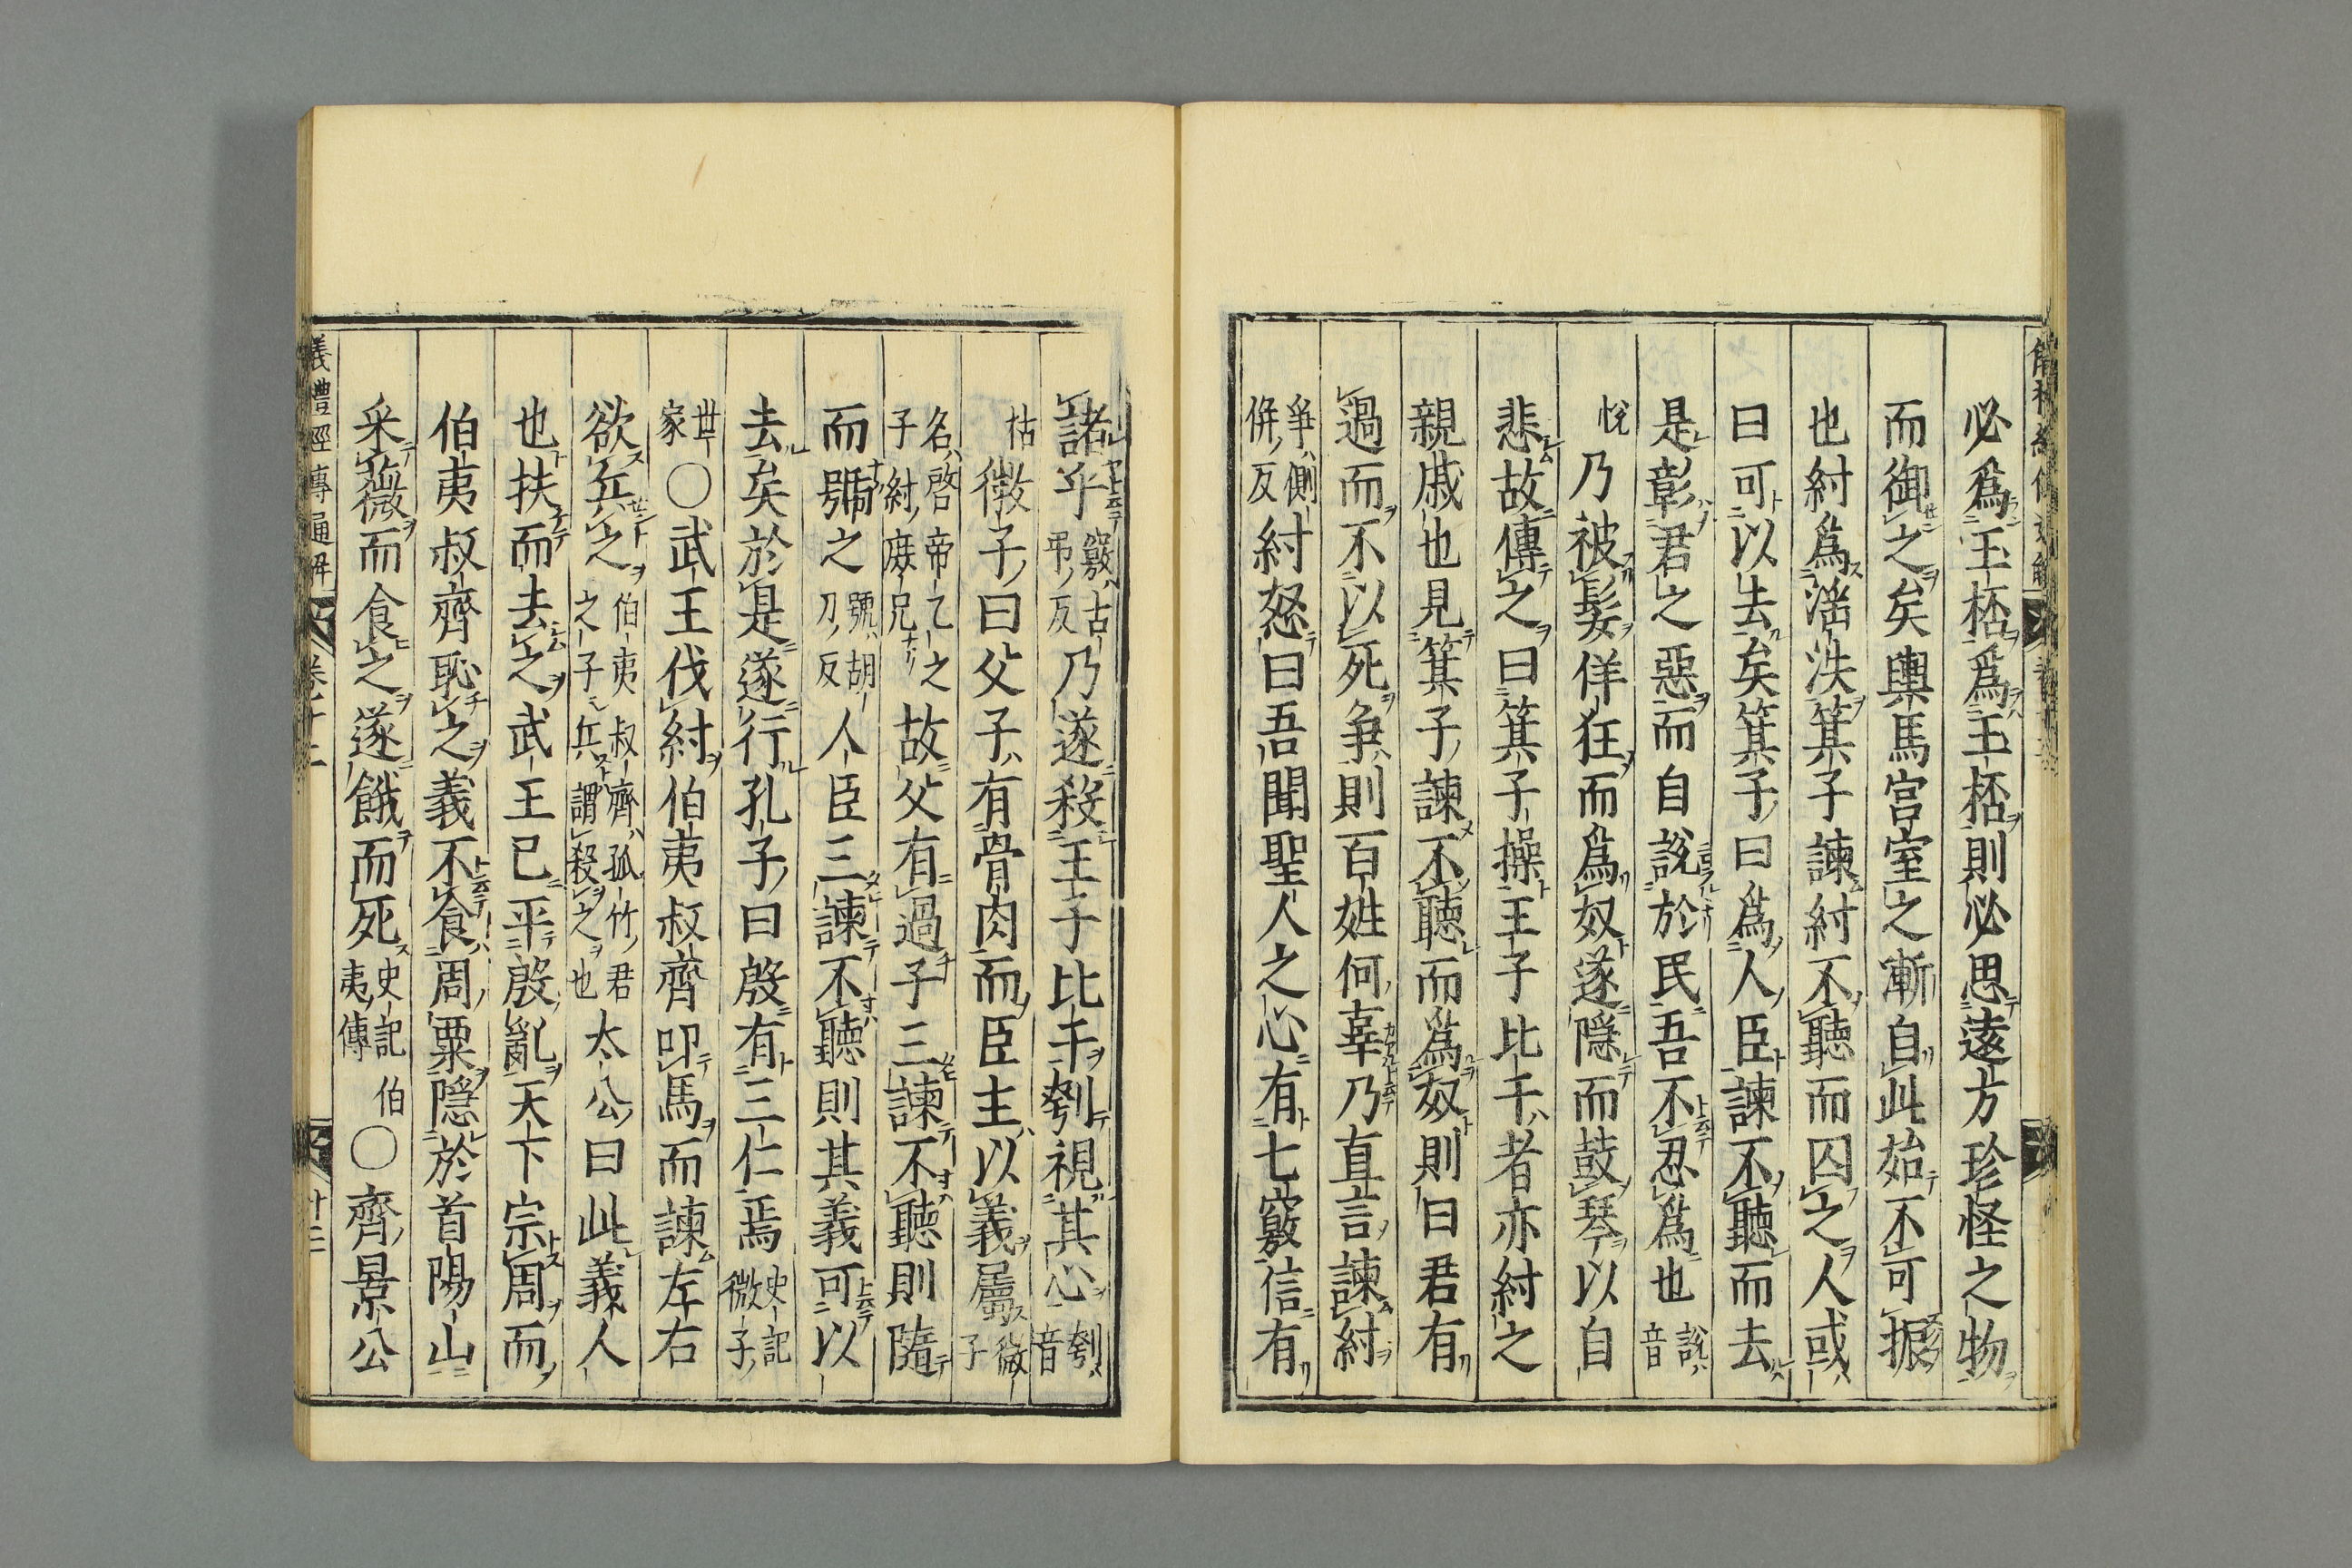 必爲玉桮爲玉桮則必思遠方珍怪之物
而御之矣輿馬宮室之漸自此始不可振
也紂爲淫泆箕子諫紂不聽而囚之人或
曰可以去矣箕子曰爲人臣諫不聽而去
是彰君之惡而自說於民吾不忍爲也說音
悅乃被髮佯狂而爲奴遂隱而鼓琴以自
悲故傳之曰箕子操王子比干者亦紂之
親戚也見箕子諫不聽而爲奴則曰君有
過而不以死爭則百姓何辜乃直言諫紂
爭側併反紂怒曰吾聞聖人之心有七竅信有
諸乎竅古弔反乃遂殺王子比干刳視其心刳音
枯微子曰父子有骨肉而臣主以義屬微子
名啓帝乙之子紂庶兄故父有過子三諫不聽則隨
而號之號胡刀反人臣三諫不聽則其義可以
去矣於是遂行孔子曰殷有三仁焉史記微子
世家〇武王伐紂伯夷叔齊叩馬而諫左右
欲兵之伯夷叔齊孤竹君之子兵謂殺之也太公曰此義人
也扶而去之武王已平殷亂天下宗周而
伯夷叔齊恥之義不食周粟隱於首陽山
采薇而食之遂餓而死史記伯夷傳〇齊景公
儀禮經傳通解 卷十二 廿三